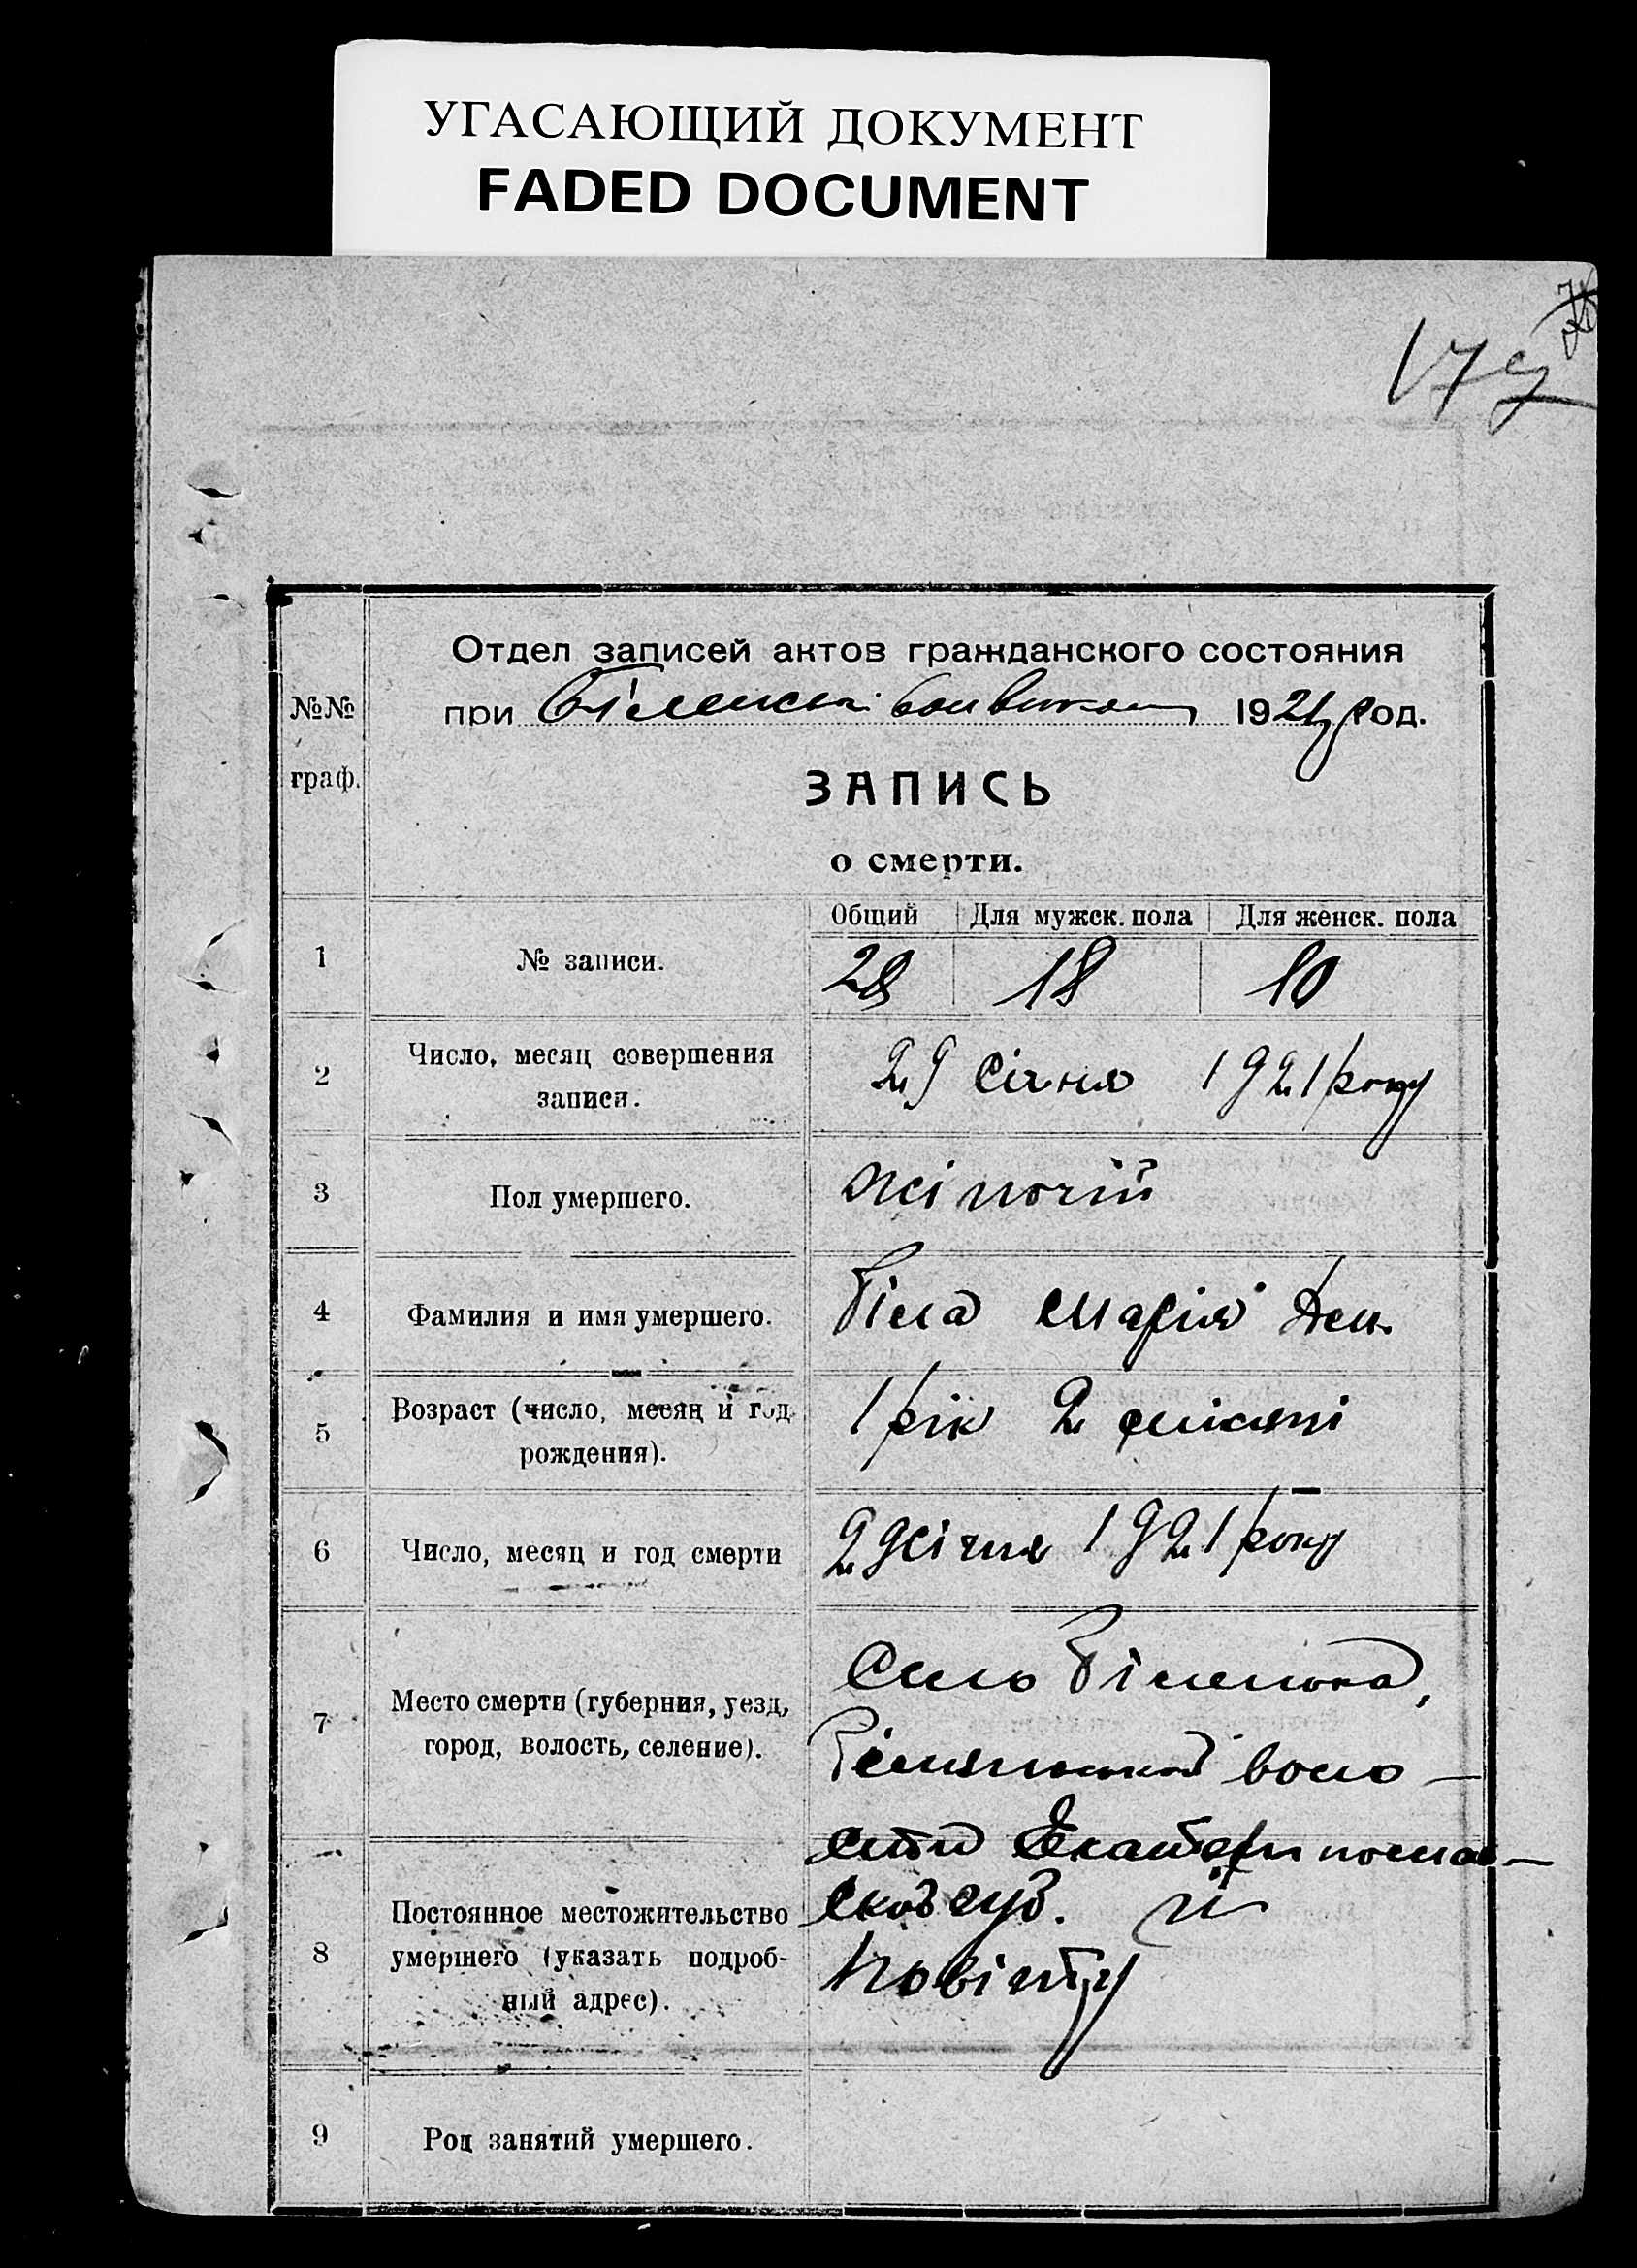 УГАСАЮЩИЙ ДОКУМЕНТ
FADED DOCUMENT
№№ граф.
Отдел записей актов гражданского состояния
при 1921 год.
ЗАПИСЬ
о смерти.
Общий Для мужск. пола Для женск. пола
1 № записи. 28 18 10
2 Число, месяц совершения
записи.
29 січня 1921 року
3 Пол умершего. жіночій
4 Фамилия и имя умершего. Біла Марія Дем.
5 Возраст (число, месяц и год
рождения).
1 рік 2 місяці
6 Число, месяц и год смерти 29 січня 1921 року
7 Место смерти (губерния, уезд,
город, волость, селение).
Село
воло-
сти Екатеринослав-
8 Постоянное местожительство
умершего (указать подроб-
ный адрес).
ской губ. и
повіту
9 Род занятий умершего.